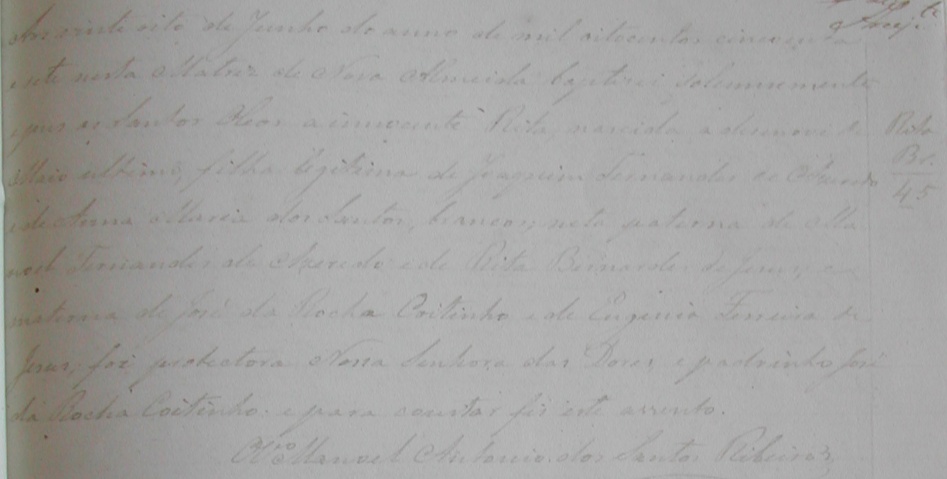 Aos vinte oito de Junho do anno de mil oitocentos cincoenta
e sete nesta Matriz de Nova Almeida baptizei solemnemente
e pus os Santos Oleos a innocente Rita, nascida a desenove de
Maio ultimo, filha legitima de Joaquim Fernandes de Azeredo
e de Anna Maria dos Santos, brancos, neta paterna de Ma
noel Fernandes de Azeredo e de Rita Bernardes de Jesus, e
materna de José da Rocha Coitinho e de Eugenia Ferreira de
Jesus, foi protectora Nossa Senhora das Dores, e padrinho José
da Rocha Coitinho. e para constar fiz este assento.
Manoel Antonio dos Santos Ribeiro
Rita
Br.
45